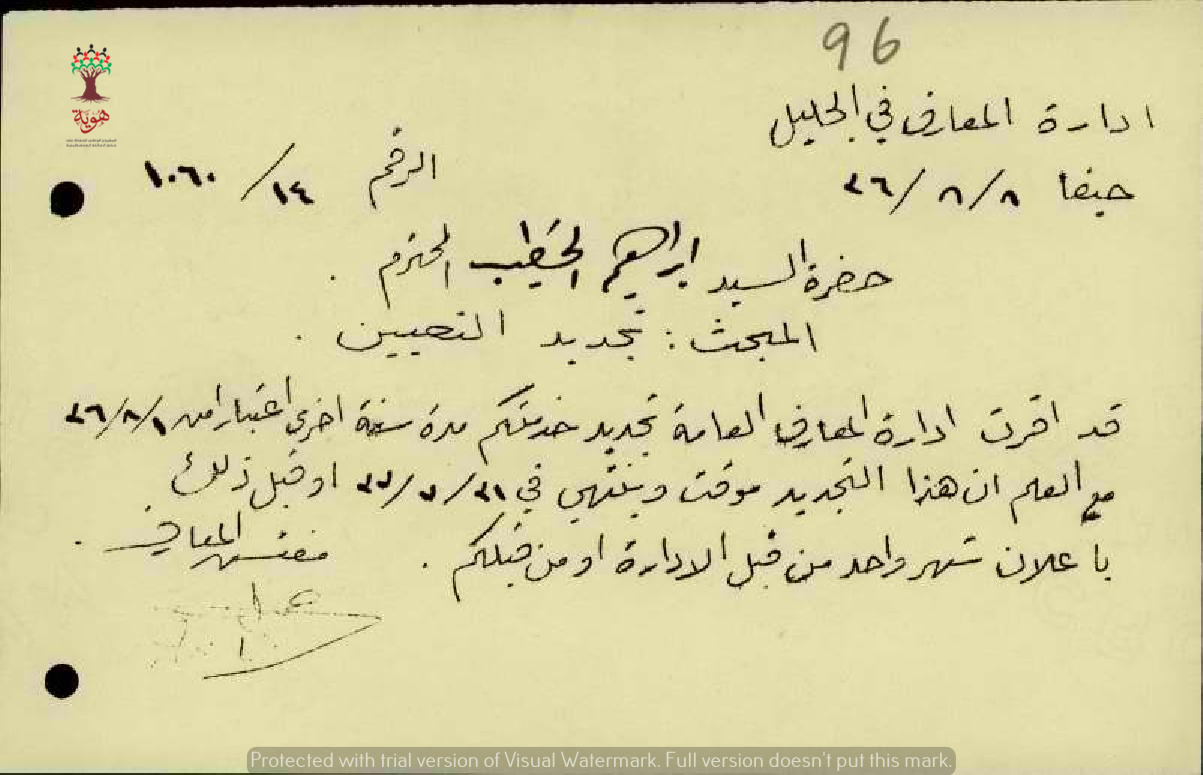 96
ادارة المعارف في الجليل
حيفا ٨/٨/٢٦ الرقم ١٤/١٠٦٠
حضرة السيد ابراهيم الخطيب المحترم .
المبحث : تجديد التعيين .
قد اقرت ادارة المعارف العامة تجديد خدمتكم مدة سنة اخرى اعتبارا من ٢٦/٨/١
مع العلم ان هذا التجديد موقت وينتهي في ٣١/٧/٢٧ او قبل ذلك
باعلان شهر واحد من قبل الادارة او من قبلكم .
مفتش المعارف .
هوية
Protected with trial version of Visual Watermark. Full version doesn't put this mark.